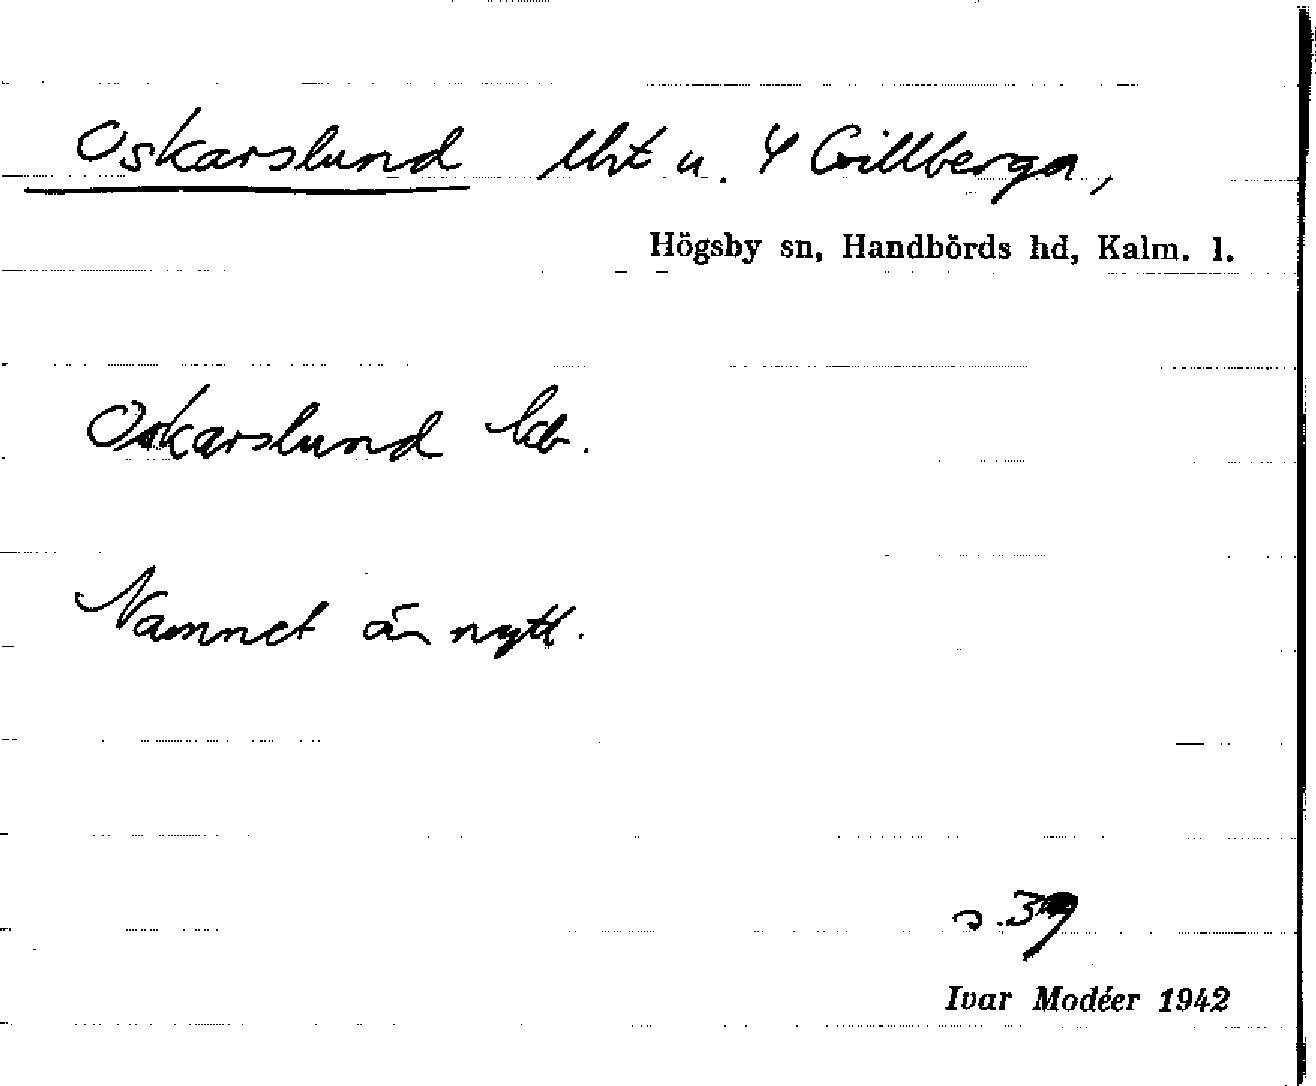 Oskarslund lht u. 4 Gillberga,
Högsby sn, Handbörds hd, Kalm. l.
Oskarslund
Namnet är nytt.
s. 39
Ivar Modéer 1942